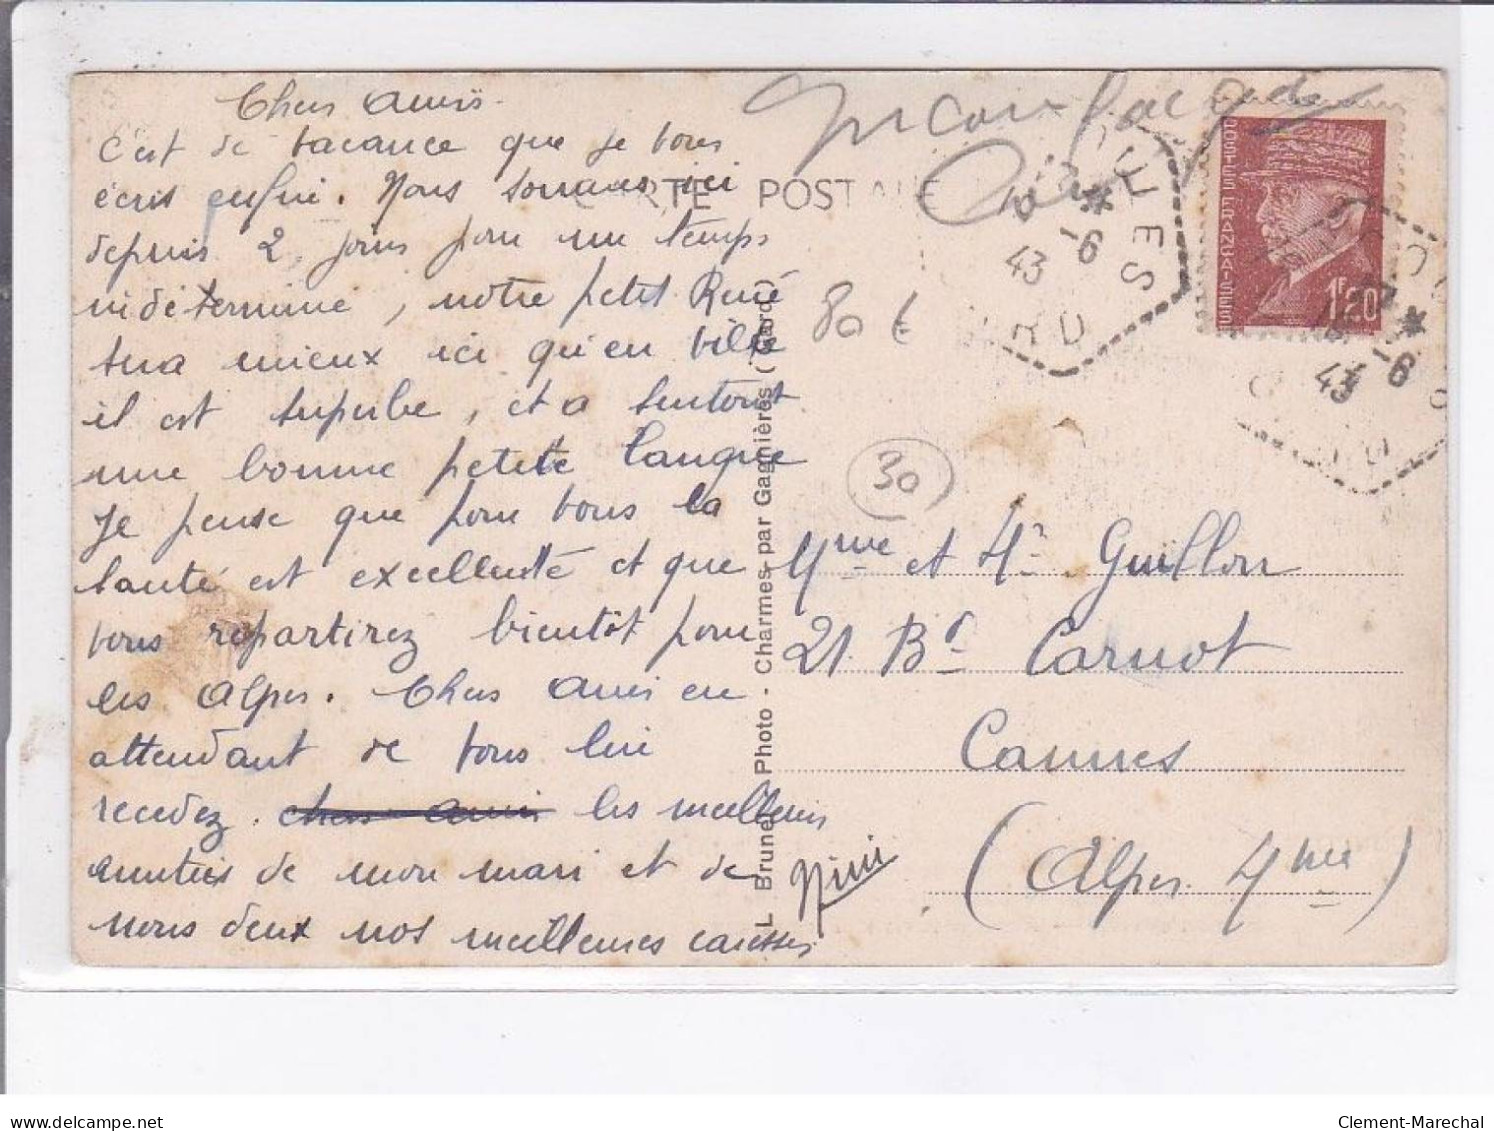 Chers amis.
C'est de vacance que je vous
écris enfin. Nous sommes ici
depuis 2 jours pour un temps
indéterminé, notre petit René
sera mieux ici qu'en ville
il est superbe, et a surtout
une bonne petite langue
Je pense que pour vous la
santé est excellente et que
vous repartirez bientôt pour
les Alpes. Chers Amis en
attendant de vous lire
recevez. chers amis les meilleurs
amitiés de mon mari et de
nous deux nos meilleures caresses
Nini
CARTE POSTALE
L. Brunel, Photo - Charmes, par Gagnières (Gard)
80 €
30
POSTES FRANÇAISES
1F20
-6
43
-6
43
Mme et Mr Guillon
21 Bd Carnot
Cannes
(Alpes Mmes)
delcampe.net
Clement-Marechal